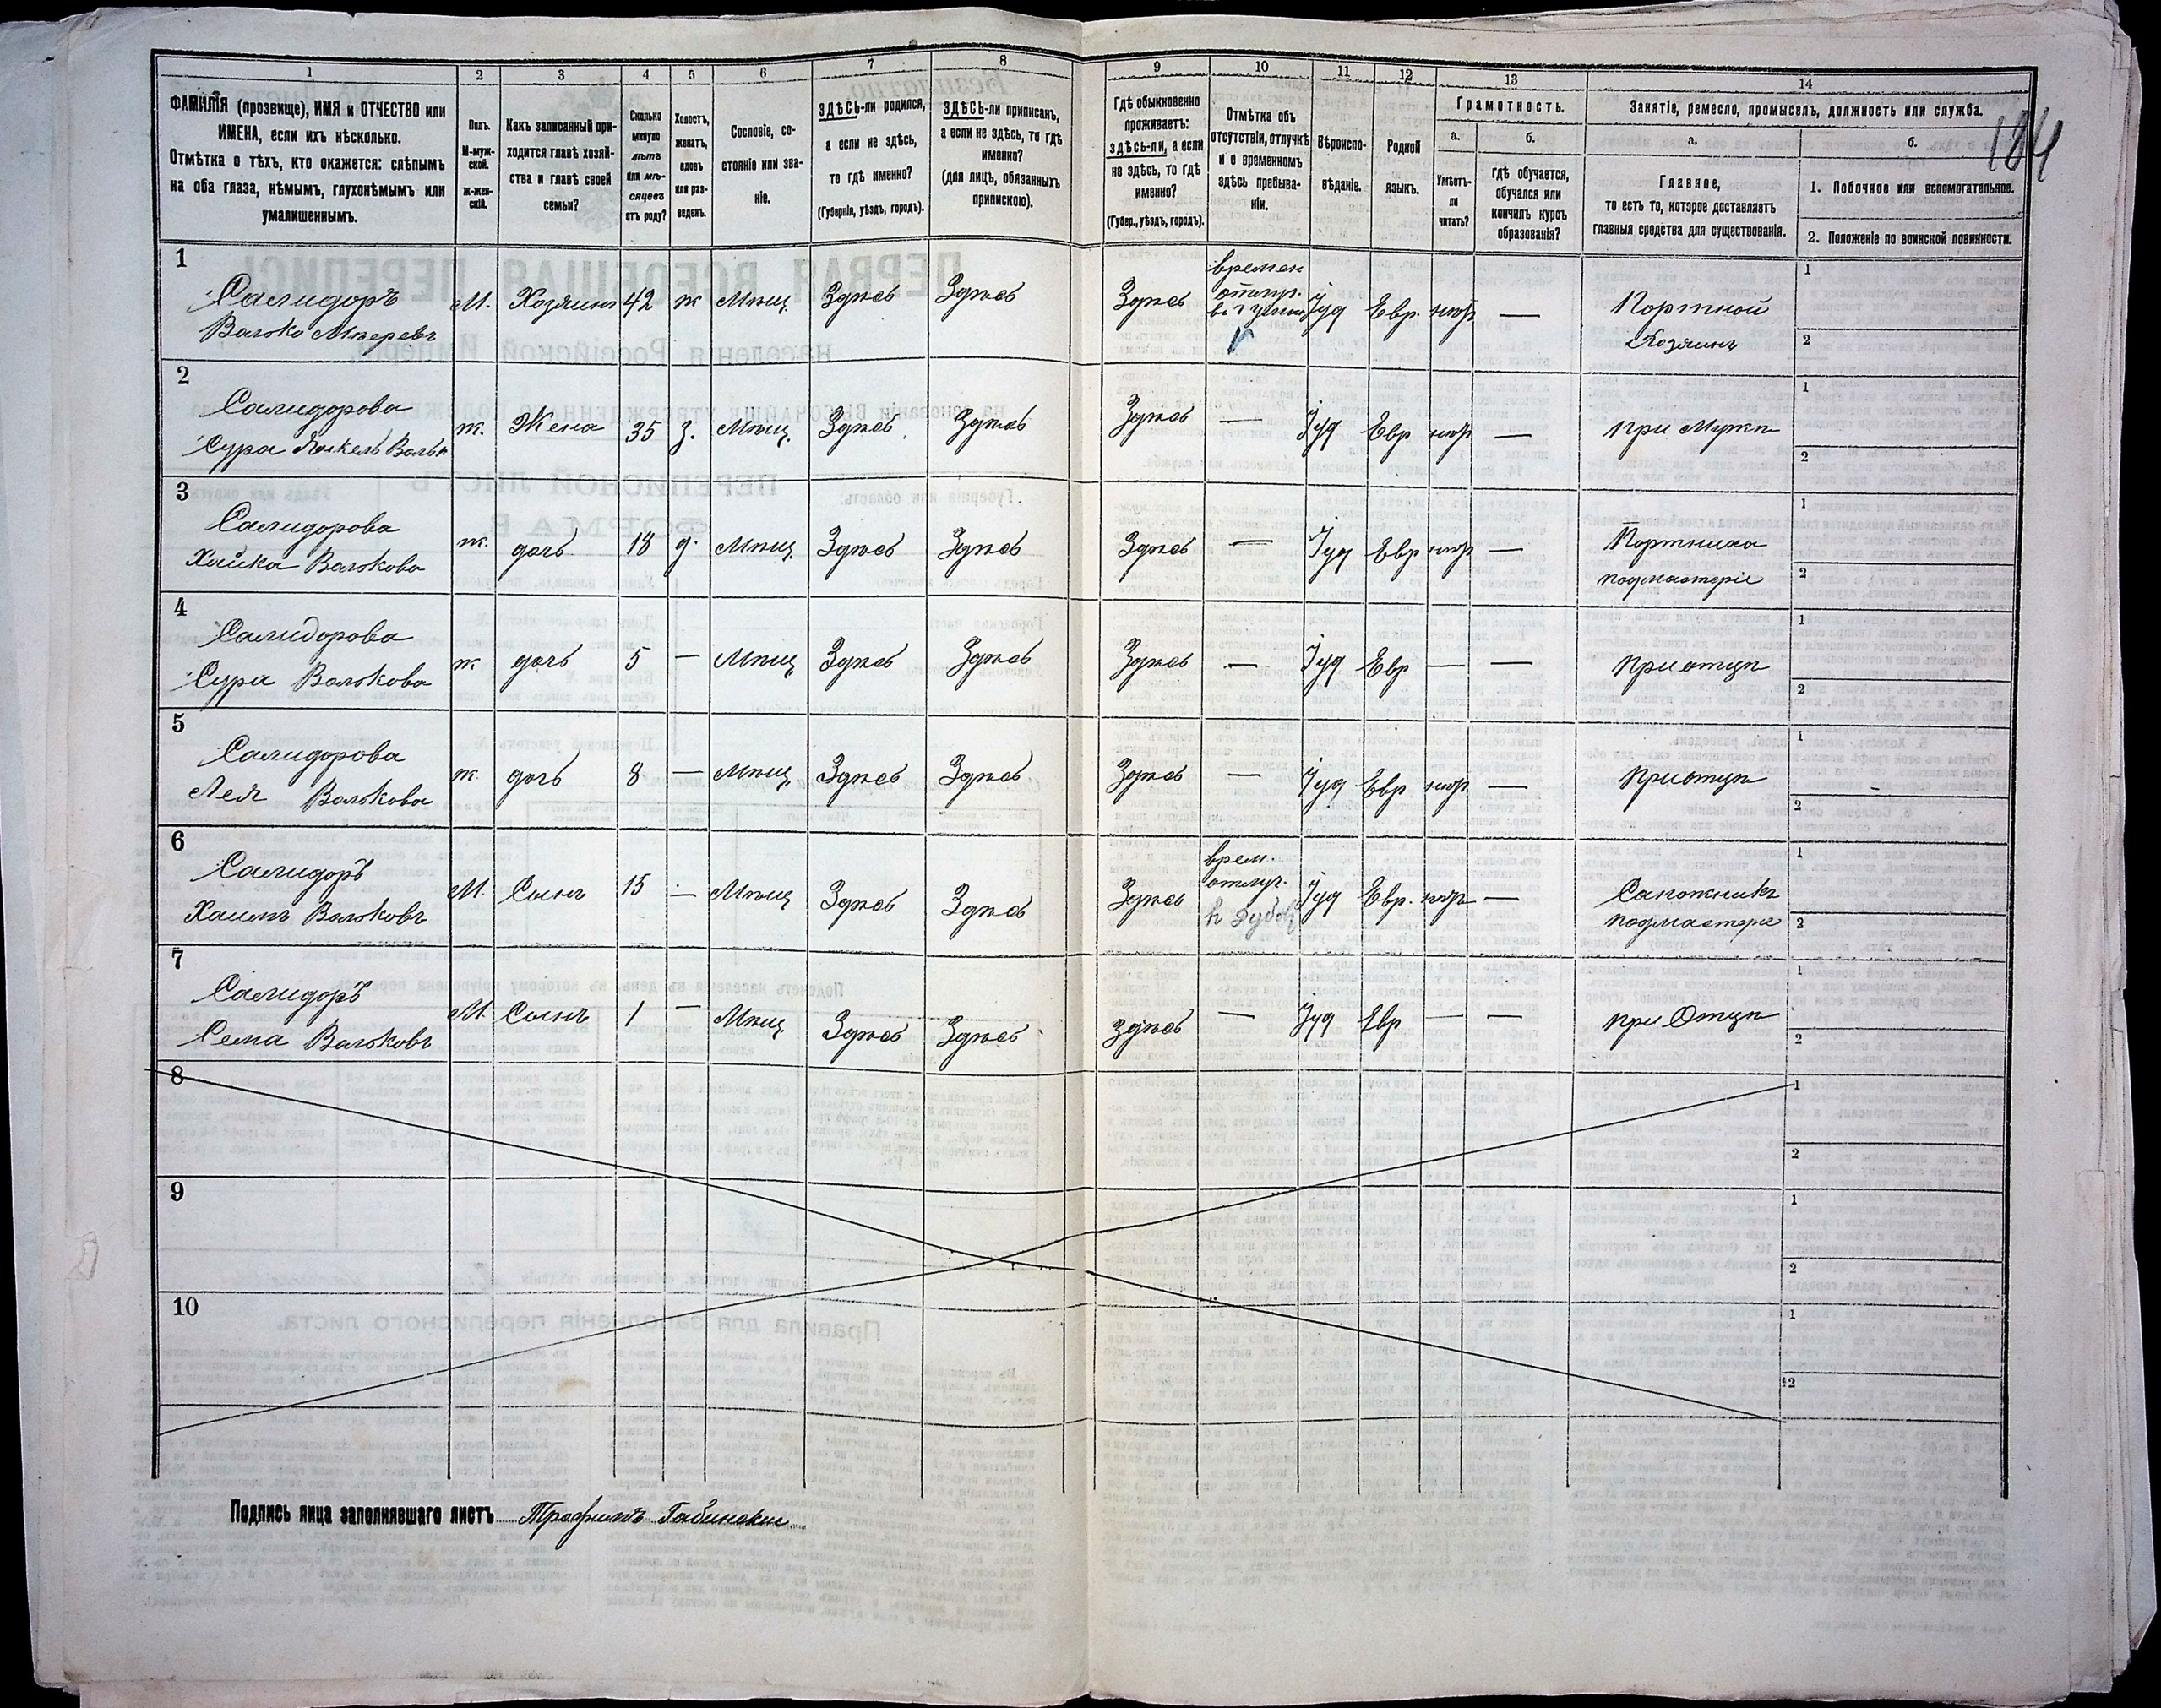 1 2 3 4 5 6 7 8 9 10 11 12 13 14
ФАМИЛІЯ (прозвище), ИМЯ и ОТЧЕСТВО или
ИМЕНА, если ихъ нѣсколько.
Отмѣтка о тѣхъ, кто окажется: слѣпымъ
на оба глаза, нѣмымъ, глухонѣмымъ или
умалишеннымъ.
Полъ.
М-муж-
ской.
Ж-жен-
скій.
Какъ записанный при-
ходится главѣ хозяй-
ства и главѣ своей
семьи?
Сколько
минуло
лѣтъ
или мѣ-
сяцевъ
отъ роду?
Холостъ,
женатъ,
вдовъ
или раз-
веденъ.
Сословіе, со-
стояніе или зва-
ніе.
ЗДѢСЬ-ли родился,
а если не здѣсь,
то гдѣ именно?
(Губернія, уѣздъ, городъ).
ЗДѢСЬ-ли приписанъ,
а если не здѣсь, то гдѣ
именно?
(для лицъ, обязанныхъ
припискою).
Гдѣ обыкновенно
проживаетъ:
здѣсь-ли, а если
не здѣсь, то гдѣ
именно?
(Губер., уѣздъ, городъ).
Отмѣтка объ
отсутствіи, отлучкѣ
и о временномъ
здѣсь пребыва-
ніи.
Вѣроиспо-
вѣданіе.
Родной
языкъ.
Грамотность.
а.
Умѣетъ-
ли
читать?
б.
Гдѣ обучается,
обучался или
кончилъ курсъ
образованія?
Занятіе, ремесло, промыселъ, должность или служба.
а.
Главное,
то есть то, которое доставляетъ
главныя средства для существованія.
б.
1. Побочное или вспомогательное.
2. Положеніе по воинской повинности.
184
1
Салидоръ
Волько Мееровъ
М. Хозяинъ 42 ж Мѣщ. Здѣсь Здѣсь Здѣсь
времен
отлуч.
Іуд Евр. нѣтъ —
Портной
Хозяинъ
1
2
2
Салидорова
Сура
ж. Жена 35 з. Мѣщ. Здѣсь Здѣсь Здѣсь — Іуд Евр нѣтъ — при Мужѣ
1
2
3
Салидорова
Хайка Волькова
ж. дочь 18 д. Мѣщ. Здѣсь Здѣсь Здѣсь — Іуд Евр нѣтъ —
Портниха
подмастеріе
1
2
4
Салидорова
Сура Волькова
ж дочь 5 — Мѣщ Здѣсь Здѣсь Здѣсь — Іуд Евр — — приотцѣ
1
2
5
Салидорова
Лея Волькова
ж. дочь 8 — Мѣщ. Здѣсь Здѣсь Здѣсь — Іуд Евр нѣтъ — приотцѣ
1
2
6
Салидоръ
Хаимъ Вольковъ
М. Сынъ 15 — Мѣщ Здѣсь Здѣсь Здѣсь
врем.
отлуч.
Іуд Евр. нѣтъ —
Сапожникъ
подмастеріе
1
2
7
Салидоръ
Сема Вольковъ
М. Сынъ 1 — Мѣщ. Здѣсь Здѣсь Здѣсь — Іуд Евр — — при Отцѣ
1
2
8
1
2
9
1
2
10
1
2
Подпись лица заполнявшаго листъ Трофимъ